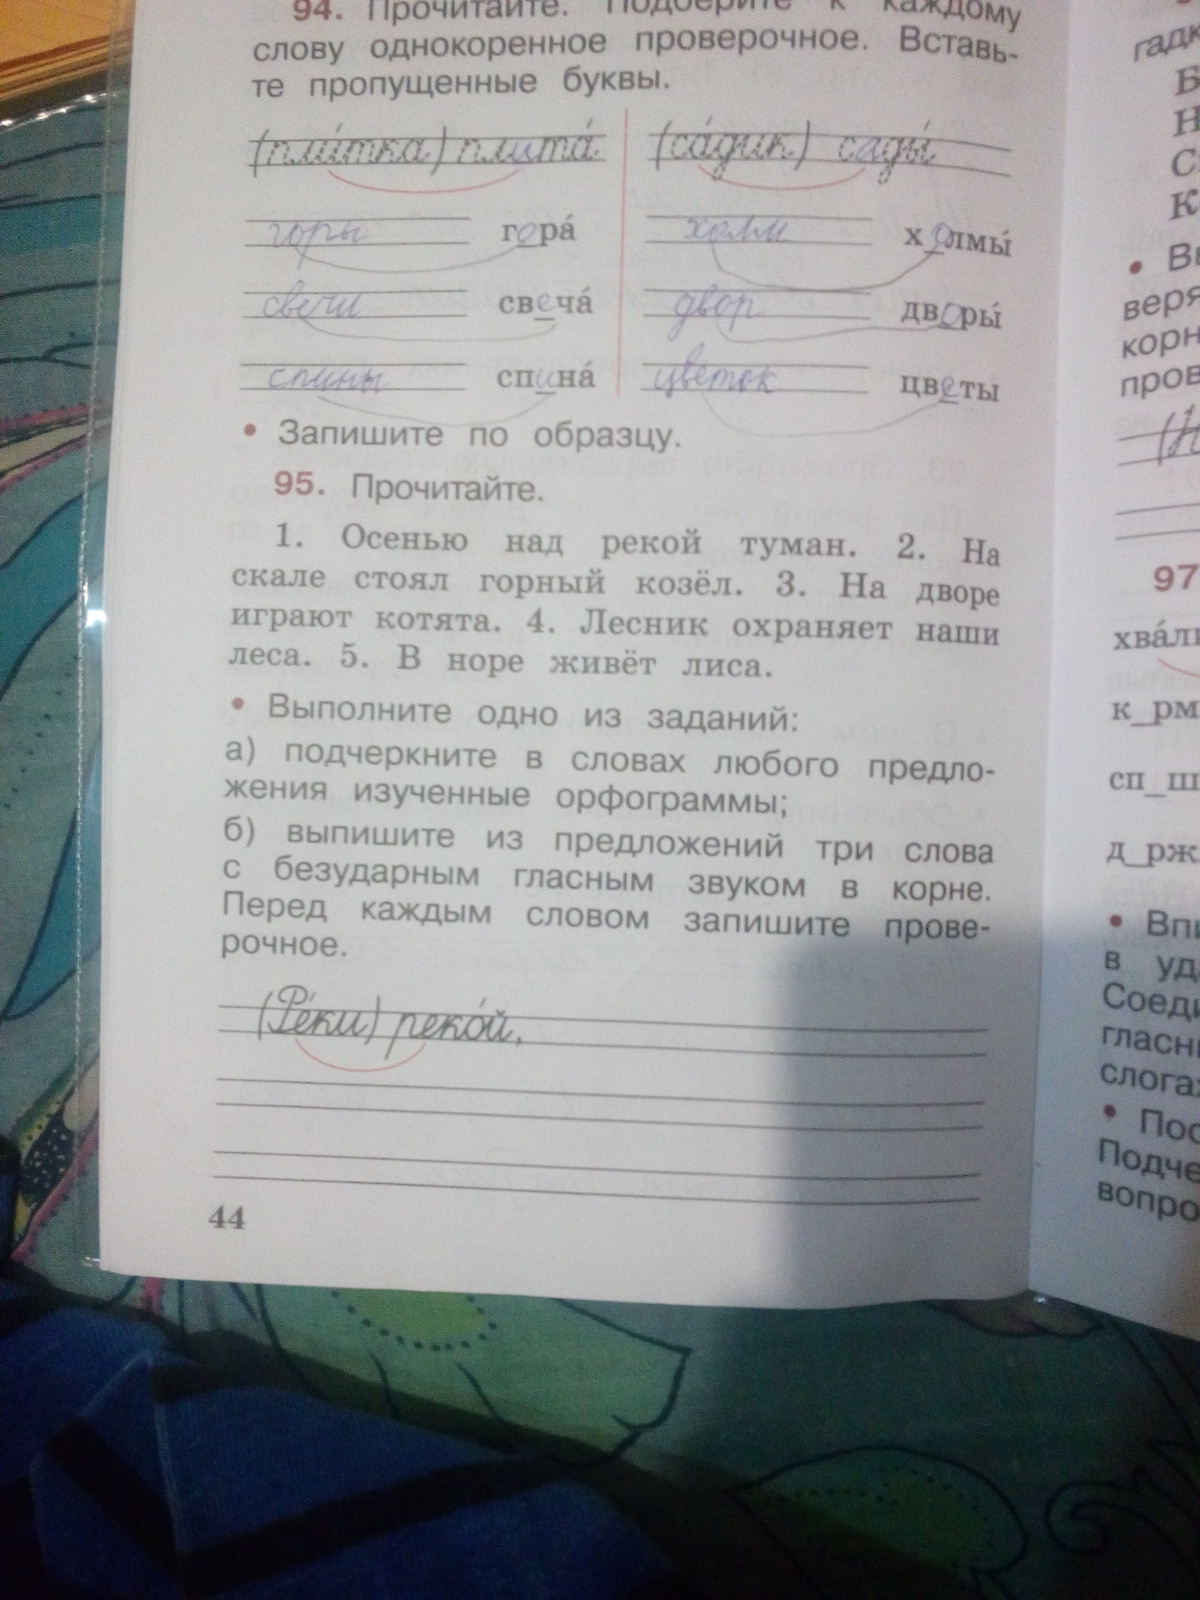 94. Прочитайте. Подберите к каждому
слову однокоренное проверочное. Вставь-
те пропущенные буквы.
(пли́тка) плита́ (са́дик) сады́
горы гора́ холм холмы́
свечи свеча́ двор дворы́
спины спина́ цветок цветы
• Запишите по образцу.
95. Прочитайте.
1. Осенью над рекой туман. 2. На
скале стоял горный козёл. 3. На дворе
играют котята. 4. Лесник охраняет наши
леса. 5. В норе живёт лиса.
• Выполните одно из заданий:
а) подчеркните в словах любого предло-
жения изученные орфограммы;
б) выпишите из предложений три слова
с безударным гласным звуком в корне.
Перед каждым словом запишите прове-
рочное.
(Ре́ки) реко́й,
44
97
к_рм
сп_ш
д_рж